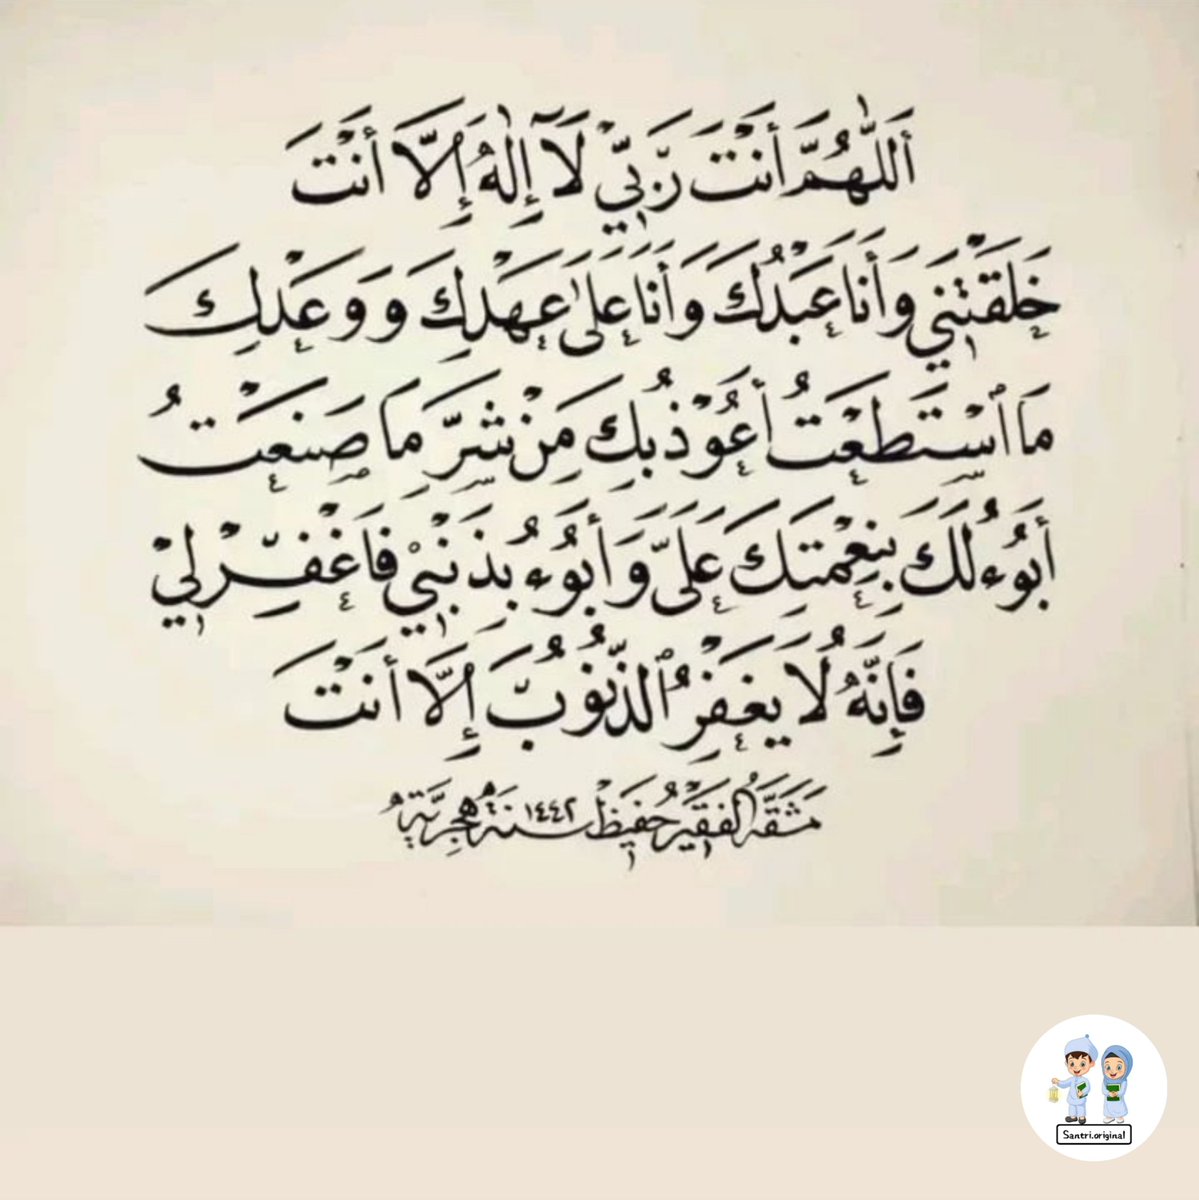 أَللّٰهُمَّ أَنْتَ رَبِّيْ لَآ إِلٰهَ إِلَّا أَنْتَ
خَلَقْتَنِي وَأَنَا عَبْدُكَ وَأَنَا عَلَى عَهْدِكَ وَوَعْدِكَ
مَا اسْتَطَعْتُ أَعُوْذُ بِكَ مِنْ شَرِّ مَا صَنَعْتُ
أَبُوْءُ لَكَ بِنِعْمَتِكَ عَلَيَّ وَأَبُوْءُ بِذَنْبِيْ فَاغْفِرْ لِيْ
فَإِنَّهُ لَا يَغْفِرُ الذُّنُوْبَ إِلَّا أَنْتَ
مَشَقَهُ الفَقِيْر حُفِيظْ ١٤٤٢ سَنَةُ هِجْرِيَّة
Santri.original